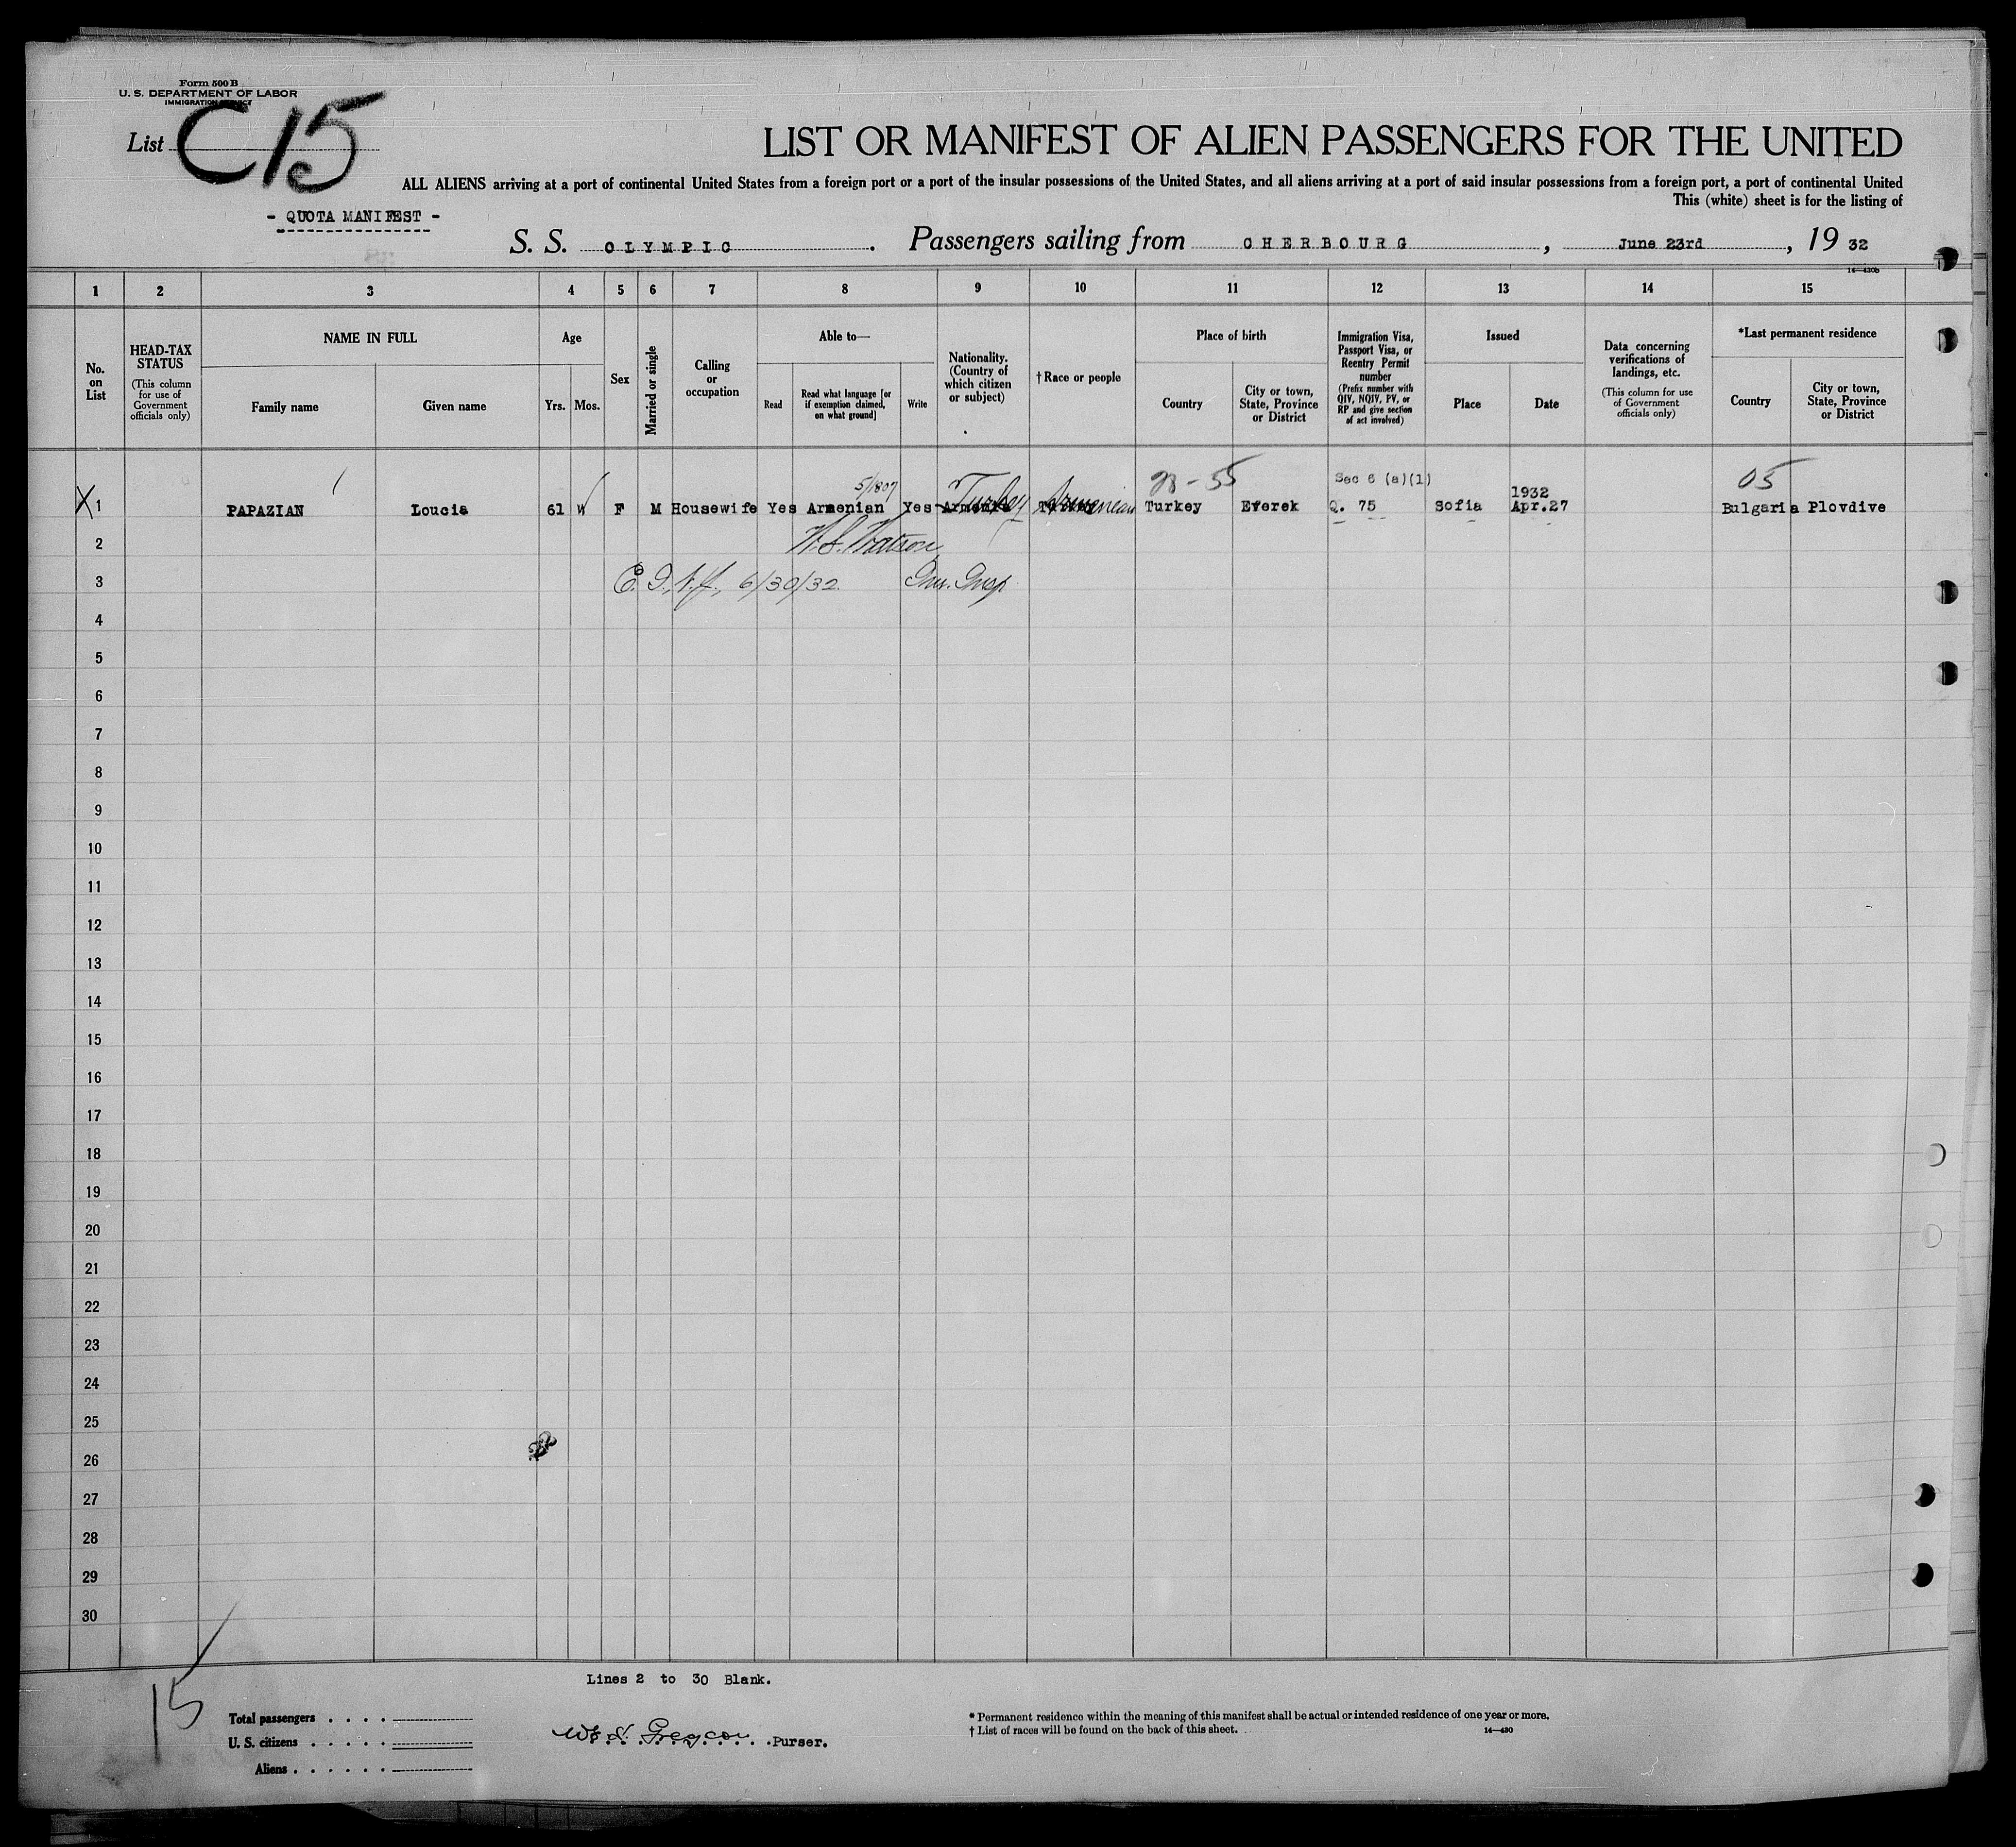 Form 500 B
U. S. DEPARTMENT OF LABOR
IMMIGRATION SERVICE
List C15
LIST OR MANIFEST OF ALIEN PASSENGERS FOR THE UNITED
ALL ALIENS arriving at a port of continental United States from a foreign port or a port of the insular possessions of the United States, and all aliens arriving at a port of said insular possessions from a foreign port, a port of continental United
This (white) sheet is for the listing of
- QUOTA MANIFEST -
S. S. OLYMPIC. Passengers sailing from CHERBOURG, June 23rd, 19 32
14—430b
1 2 3 4 5 6 7 8 9 10 11 12 13 14 15
No. on List
HEAD-TAX STATUS
(This column for use of Government officials only)
NAME IN FULL
Family name
Given name
Age
Yrs.
Mos.
Sex
Married or single
Calling or occupation
Able to—
Read
Read what language [or if exemption claimed, on what ground]
Write
Nationality. (Country of which citizen or subject)
†Race or people
Place of birth
Country
City or town, State, Province or District
Immigration Visa, Passport Visa, or Reentry Permit number
(Prefix number with QIV, NQIV, PV, or RP and give section of act involved)
Issued
Place
Date
Data concerning verifications of landings, etc.
(This column for use of Government officials only)
*Last permanent residence
Country
City or town, State, Province or District
5/1807 28-55 Sec 6 (a)(1) 05
X 1 PAPAZIAN Loucia 61 F M Housewife Yes Armenian Yes Armenia Turkey Armenian Turkey Everek Q. 75 Sofia 1932 Apr.27 Bulgaria Plovdive
2 W.S. Watson
3 6/30/32. Imm. Insp.
4
5
6
7
8
9
10
11
12
13
14
15
16
17
18
19
20
21
22
23
24
25
26
27
28
29
30
Lines 2 to 30 Blank.
15
Total passengers
U. S. citizens
Aliens
Purser.
* Permanent residence within the meaning of this manifest shall be actual or intended residence of one year or more.
† List of races will be found on the back of this sheet.
14—430